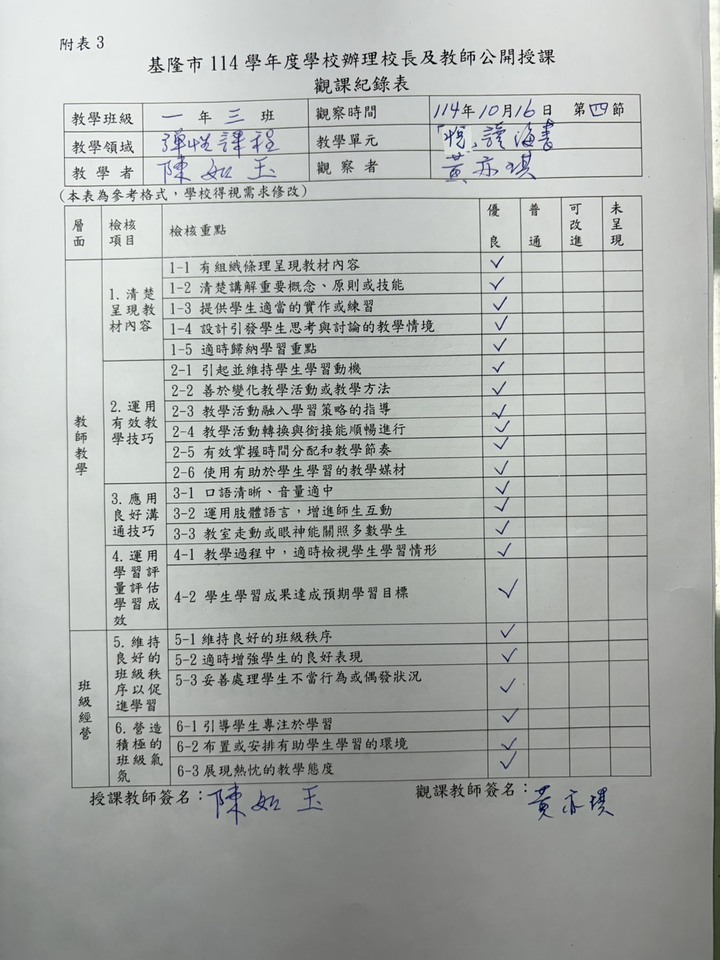 附表 3
基隆市 114 學年度學校辦理校長及教師公開授課
觀課紀錄表
教學班級 一 年 三 班 觀察時間 114年10月16日 第四節
教學領域 彈性課程 教學單元 「悅」讀海書
教學者 陳如玉 觀察者 黃亦琪
(本表為參考格式，學校得視需求修改)
層面 檢核項目 檢核重點 優良 普通 可改進 未呈現
教師教學
1. 清楚呈現教材內容
1-1 有組織條理呈現教材內容 ✓
1-2 清楚講解重要概念、原則或技能 ✓
1-3 提供學生適當的實作或練習 ✓
1-4 設計引發學生思考與討論的教學情境 ✓
1-5 適時歸納學習重點 ✓
2. 運用有效教學技巧
2-1 引起並維持學生學習動機 ✓
2-2 善於變化教學活動或教學方法 ✓
2-3 教學活動融入學習策略的指導 ✓
2-4 教學活動轉換與銜接能順暢進行 ✓
2-5 有效掌握時間分配和教學節奏 ✓
2-6 使用有助於學生學習的教學媒材 ✓
3. 應用良好溝通技巧
3-1 口語清晰、音量適中 ✓
3-2 運用肢體語言，增進師生互動 ✓
3-3 教室走動或眼神能關照多數學生 ✓
4. 運用學習評量評估學習成效
4-1 教學過程中，適時檢視學生學習情形 ✓
4-2 學生學習成果達成預期學習目標 ✓
班級經營
5. 維持良好的班級秩序以促進學習
5-1 維持良好的班級秩序 ✓
5-2 適時增強學生的良好表現 ✓
5-3 妥善處理學生不當行為或偶發狀況 ✓
6. 營造積極的班級氣氛
6-1 引導學生專注於學習 ✓
6-2 布置或安排有助學生學習的環境 ✓
6-3 展現熱忱的教學態度 ✓
授課教師簽名：陳如玉 觀課教師簽名：黃亦琪